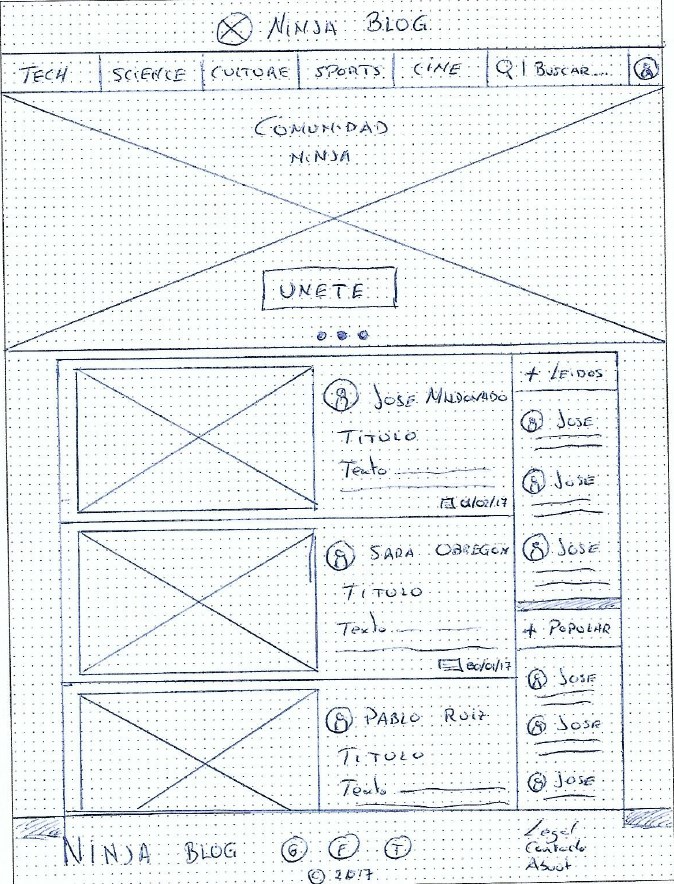 NINJA BLOG
TECH SCIENCE CULTURE SPORTS CINE BUSCAR....
COMUNIDAD
NINJA
UNETE
JOSE MALDONADO
TITULO
Texto
01/02/17
SARA OBREGON
TITULO
Texto
30/01/17
PABLO RUIZ
TITULO
Texto
+ LEIDOS
JOSE
JOSE
JOSE
+ POPULAR
JOSE
JOSE
JOSE
NINJA BLOG G F T
© 2017
Legal
Contacto
About